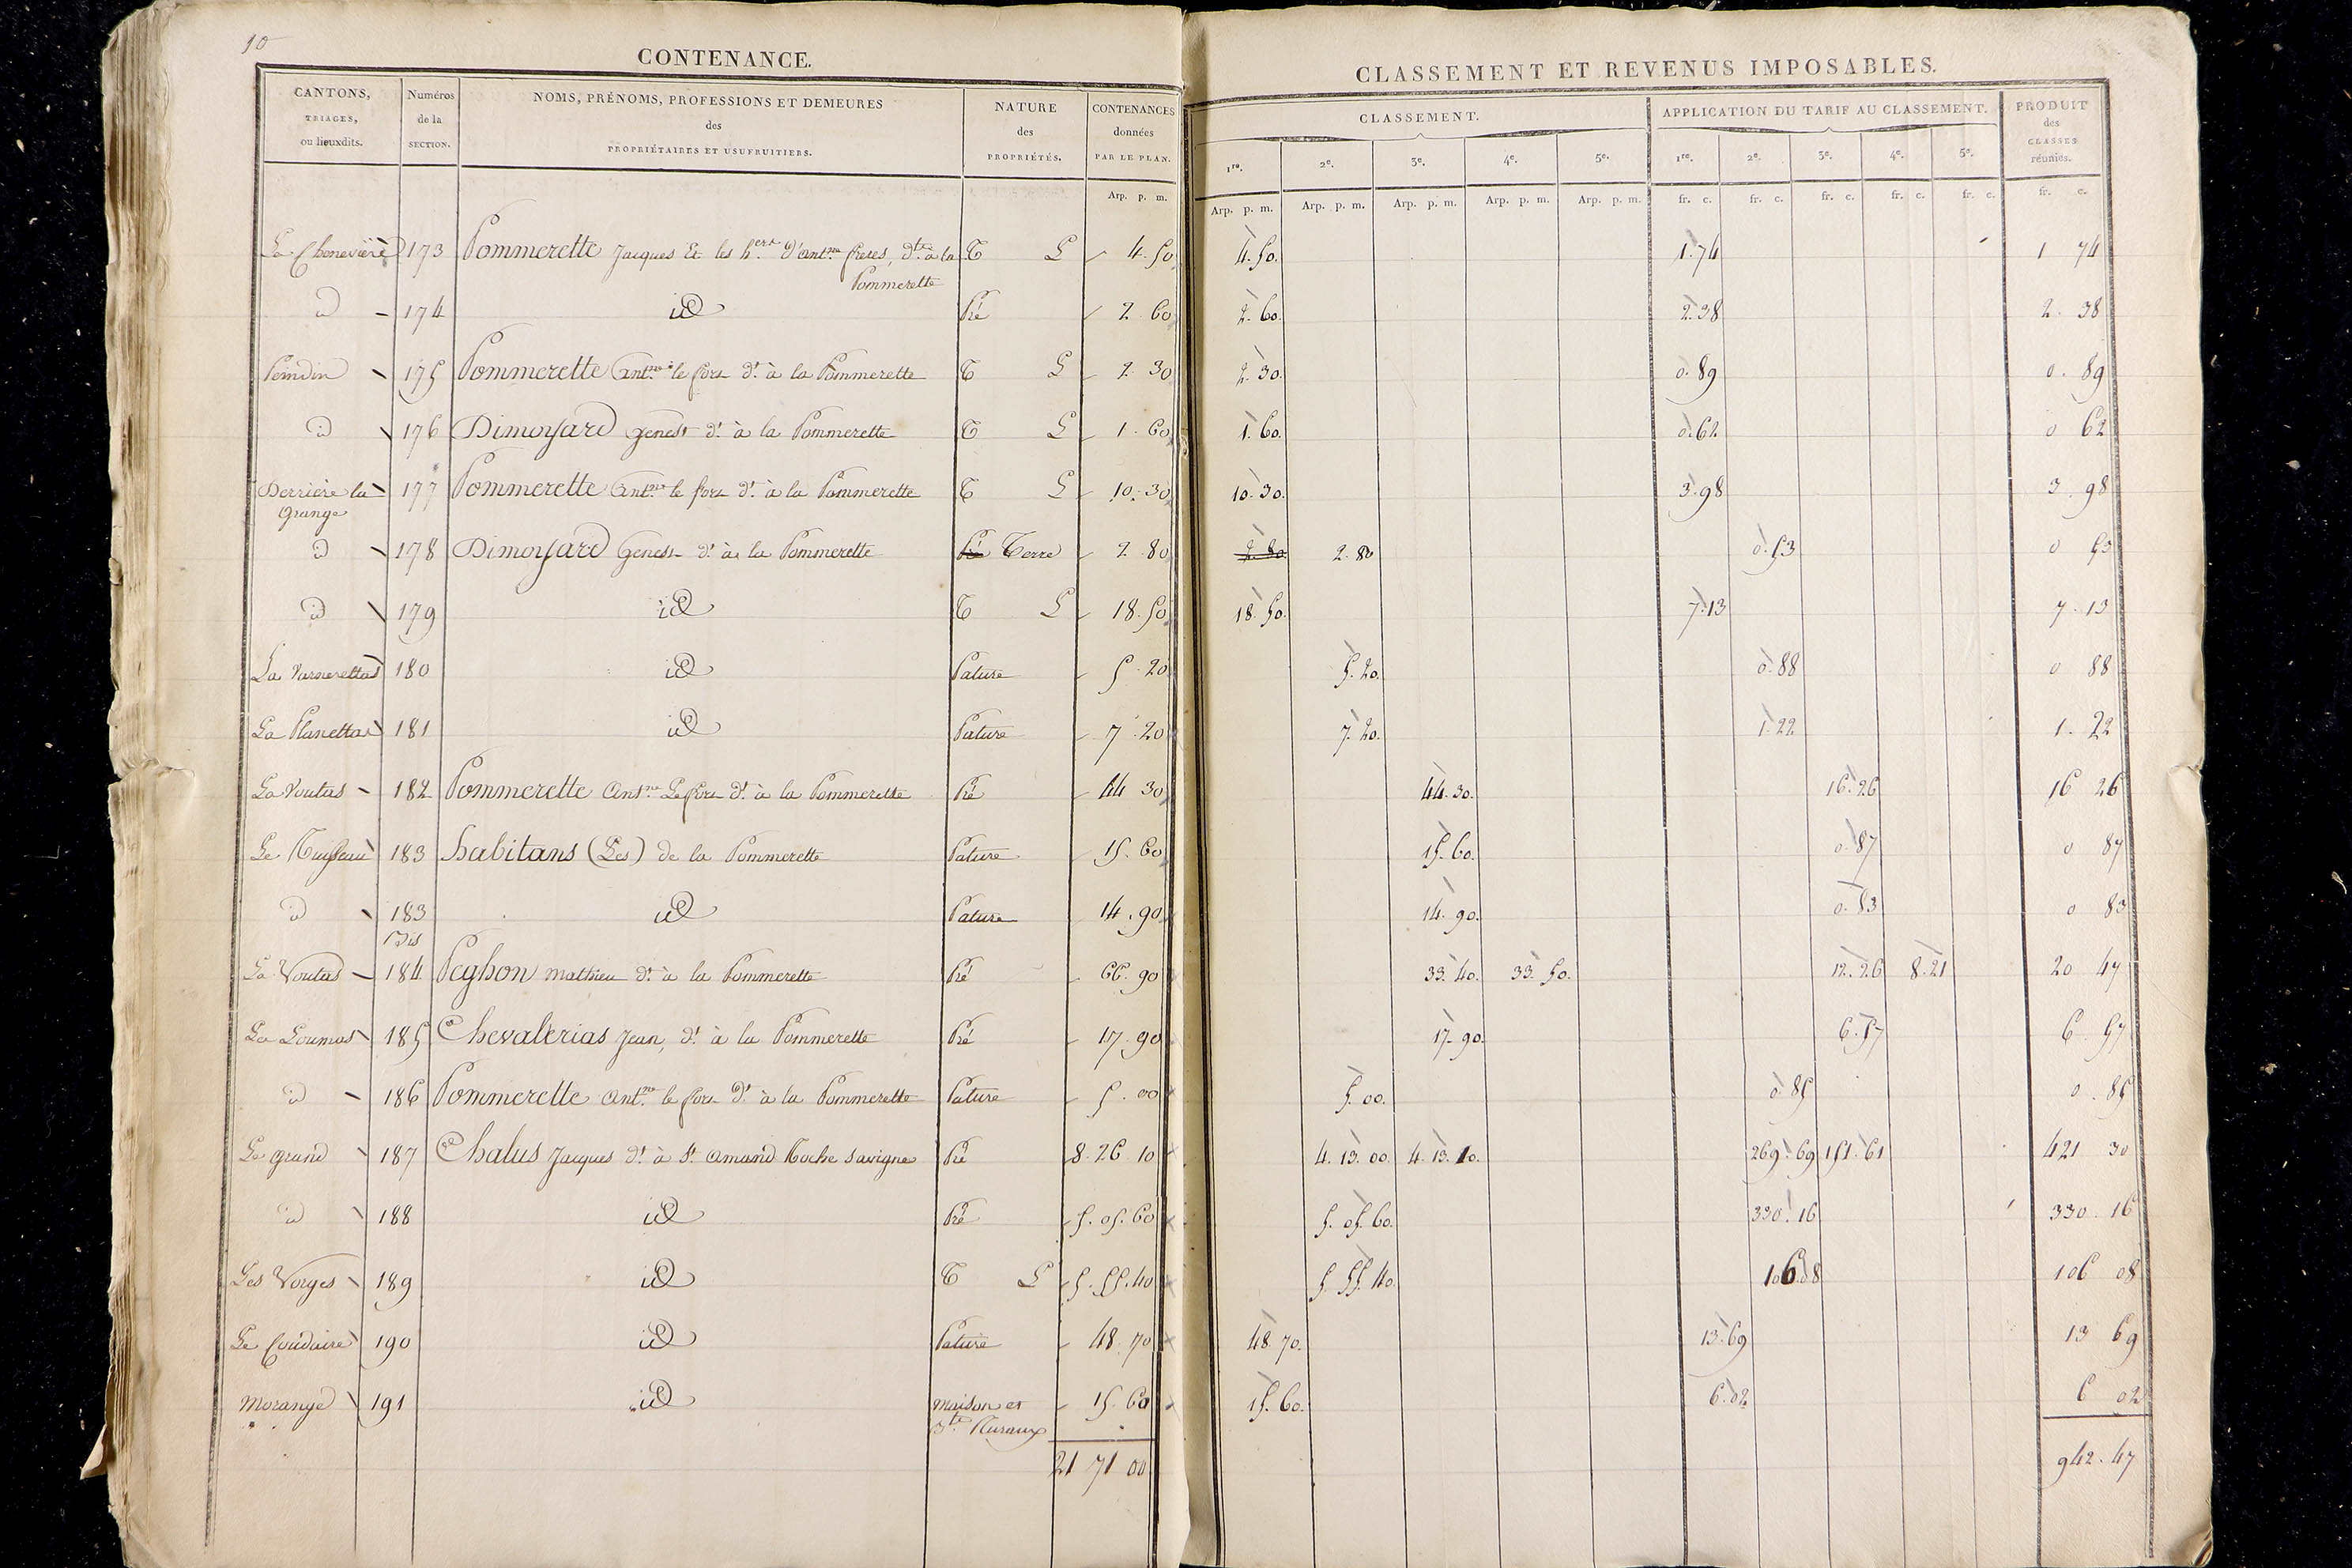 10
CONTENANCE.
CLASSEMENT ET REVENUS IMPOSABLES.
CANTONS, TRIAGES, ou lieuxdits.
Numéros de la SECTION.
NOMS, PRÉNOMS, PROFESSIONS ET DEMEURES des PROPRIÉTAIRES ET USUFRUITIERS.
NATURE des PROPRIÉTÉS.
CONTENANCES données PAR LE PLAN.
CLASSEMENT.
APPLICATION DU TARIF AU CLASSEMENT.
PRODUIT des CLASSES réunies.
1re. 2e. 3e. 4e. 5e. 1re. 2e. 3e. 4e. 5e.
Arp. p. m. Arp. p. m. Arp. p. m. Arp. p. m. Arp. p. m. Arp. p. m. fr. c. fr. c. fr. c. fr. c. fr. c. fr. c.
La Chenevière 173 Pommerette Jacques Et les hers d'Antne freres, dts à la T L 4.50 4.50. 1.74 1 74
Pommerette
d 174 id Pré 2 60 2.60. 2.38 2. 38
175 Pommerette Antne le fort dt à la Pommerette T L 2 30 2.30. 0.89 0. 89
d 176 Dimoyard Genest dt à la Pommerette T L 1.60 1.60. 0.62 0 62
Derriere la 177 Pommerette Antne le fort dt à la Pommerette T L 10.30 10.30. 3.98 3. 98
Grange
d 178 Dimoyard Genest dt à la Pommerette Pré Terre 2.80 2.80 2.80 0.53 0 53
d 179 id T L 18.50 18.50. 7.13 7.13
La 180 id Pature 5.20 5.20. 0.88 0 88
La Planettas 181 id Pature 7.20 7.20. 1.22 1. 22
La Voutas 182 Pommerette Antne Le fort dt à la Pommerette Pré 44 30 44.30. 16.26 16 26
Le Ruisseau 183 habitans (Les) de la Pommerette Pature 15.60 15.60. 0.87 0 87
d 183 id Pature 14.90 14.90. 0.83 0 83
Bis
La Voutas 184 Peghon mathieu dt à la Pommerette Pré 66.90 33.40. 33.50. 12.26 8.21 20 47
La Loumas 185 Chevalerias Jean, dt à la Pommerette Pré 17.90 17.90. 6.57 6. 57
d 186 Pommerette Antne le fort dt à la Pommerette Pature 5.00 5.00. 0.85 0. 85
Le grand 187 Chalus Jacques dt à St Amand Roche Savigne Pré 8.26 10 4.13.00. 4.13.10. 269.69 151.61 421 30
d 188 id Pré 5.05.60 5.05.60. 330.16 330.16
Les Vorges 189 id T L 5.55.40 5.55.40. 106.08 106 08
Le 190 id Pature 48.70 48.70. 13.69 13 69
Morange 191 id maison et 15.60 15.60. 6.02 6 02
Bts Ruraux
21 71 00 942.47